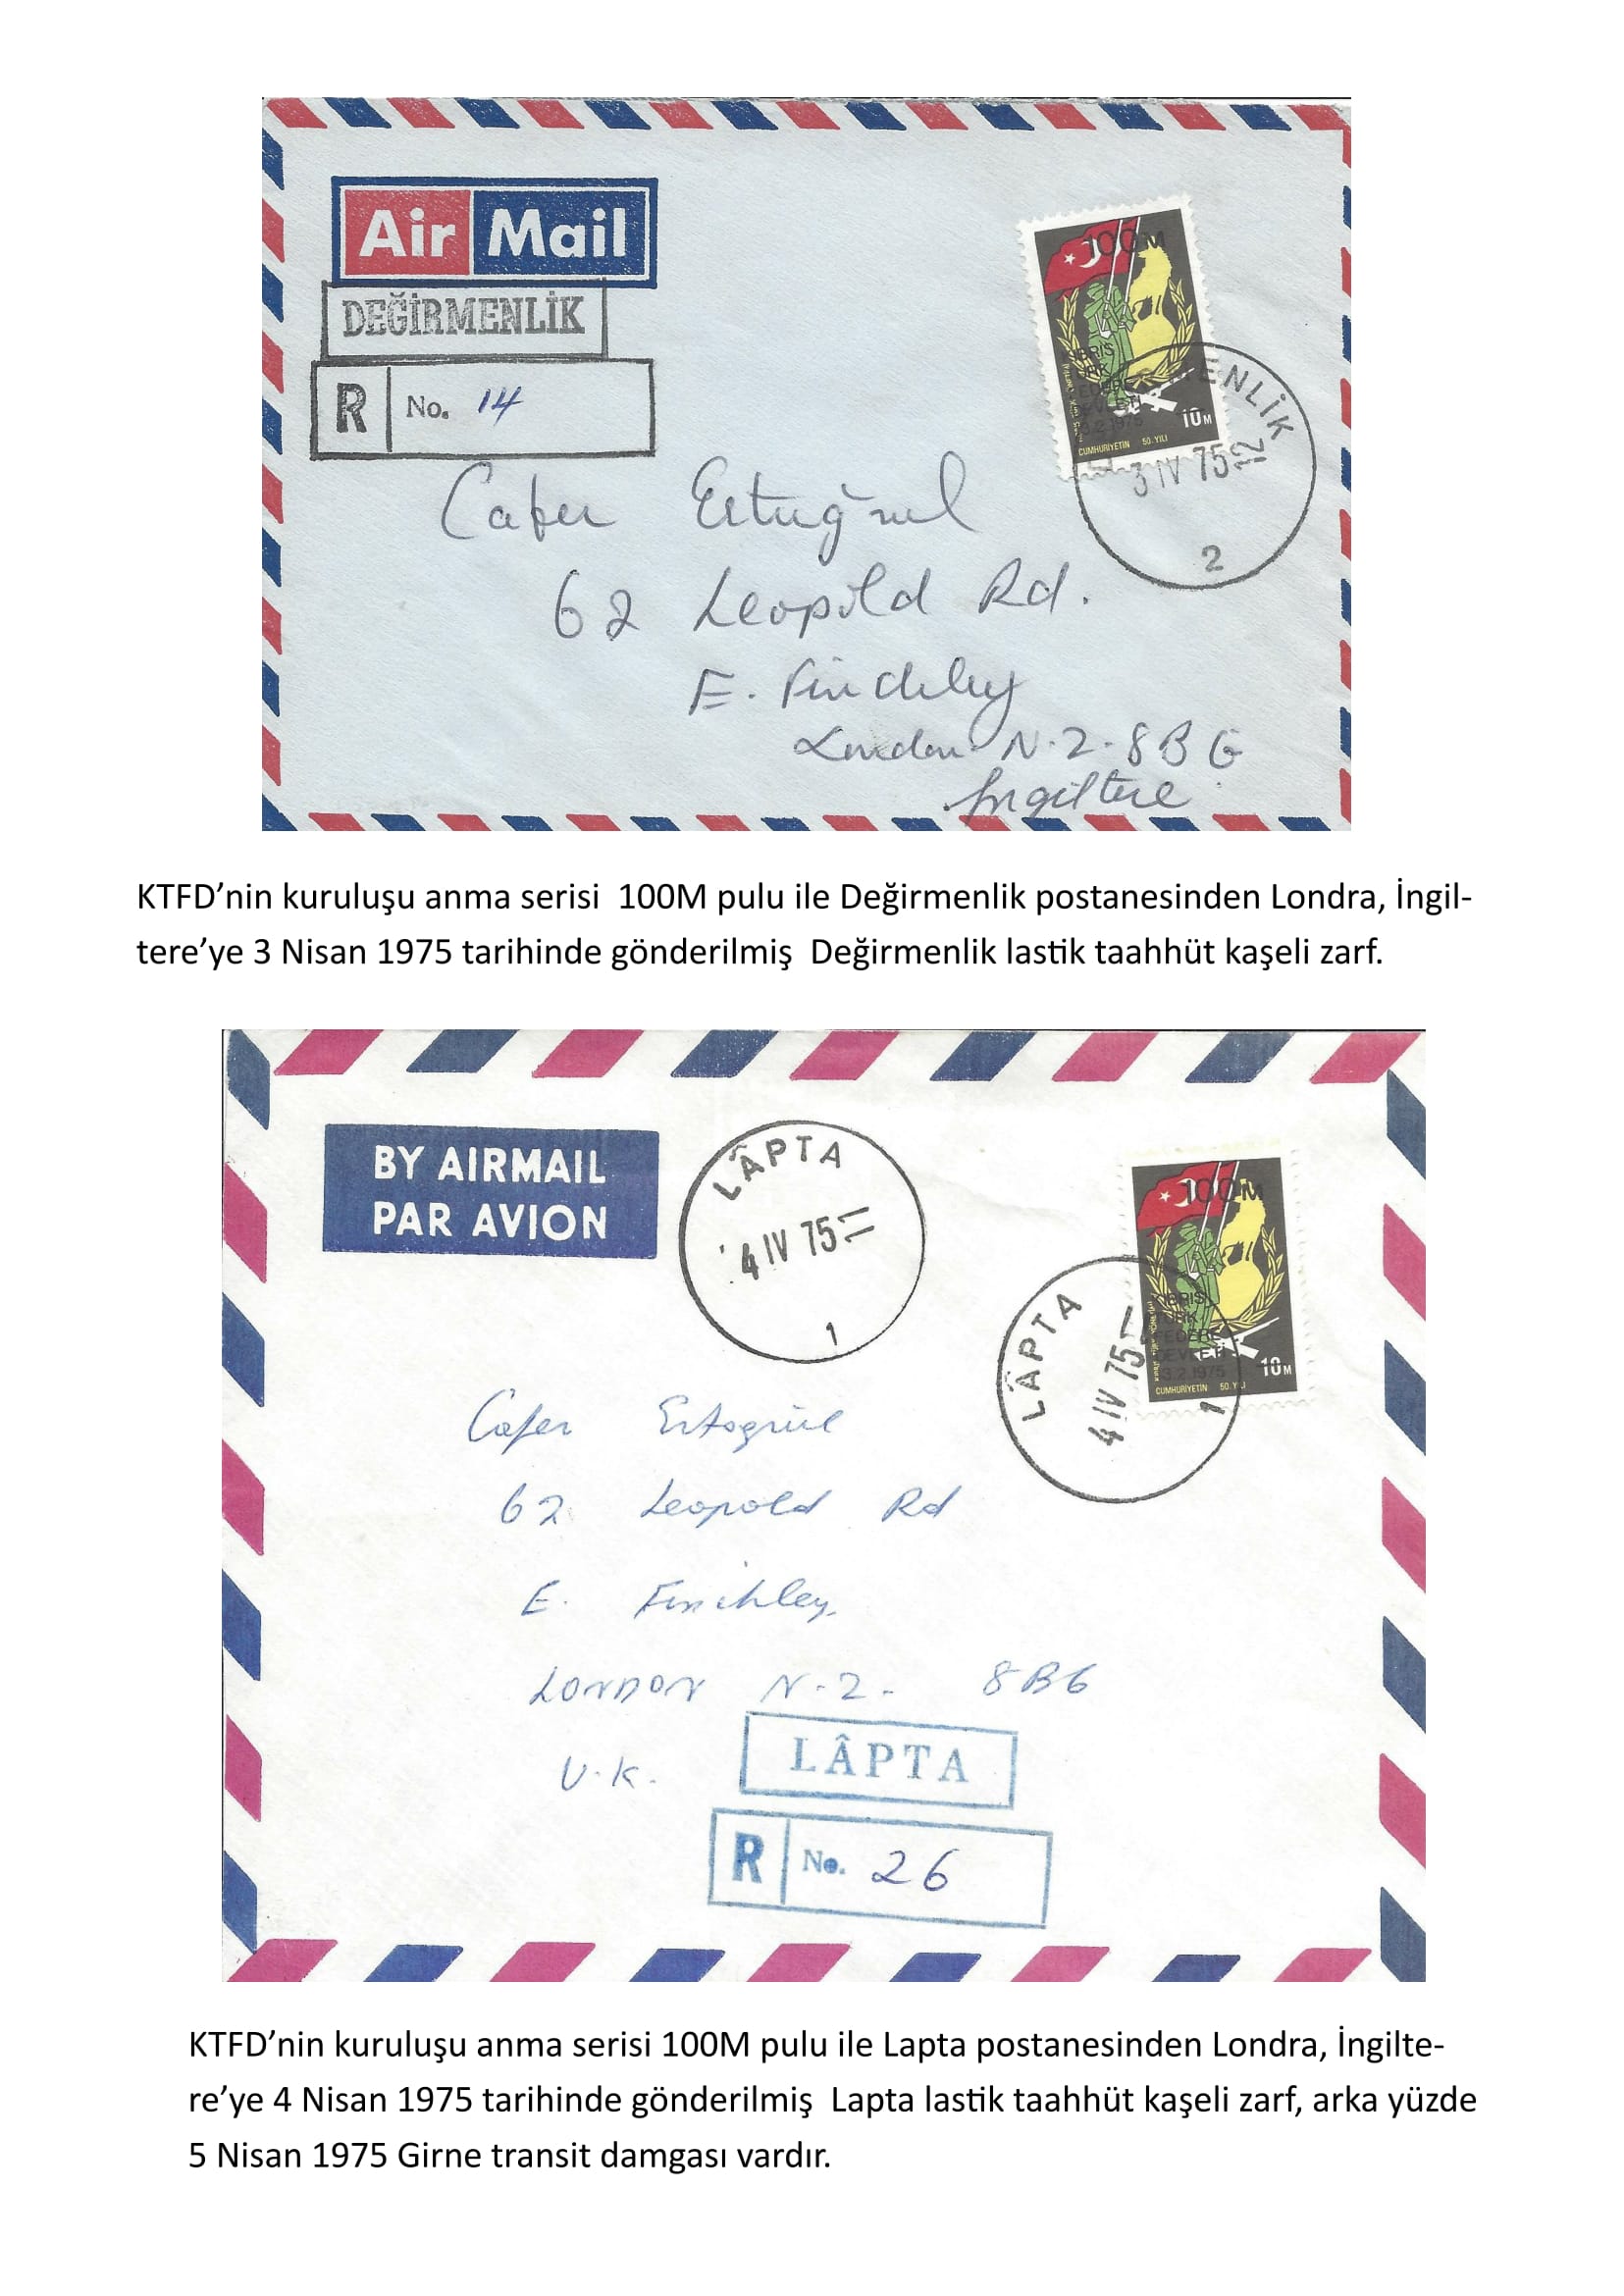 Air Mail
DEĞİRMENLİK
R No. 14
100M
KIBRIS
TÜRK
FEDERE
DEVLETİ
13.2.1975
10M
CUMHURİYETİN 50. YILI
ENLİK
3 IV 75 12
2
Cafer Ertuğrul
62 Leopold Rd.
E. Finchley
London N.2.8BG
İngiltere
KTFD’nin kuruluşu anma serisi 100M pulu ile Değirmenlik postanesinden Londra, İngil-
tere’ye 3 Nisan 1975 tarihinde gönderilmiş Değirmenlik lastik taahhüt kaşeli zarf.
BY AIRMAIL
PAR AVION
LÂPTA
4 IV 75 11
1
100M
KIBRIS
TÜRK
FEDERE
DEVLETİ
13.2.1975
10M
CUMHURİYETİN 50. YILI
LÂPTA
4 IV 75
1
Cafer Ertogrul
62 Leopold Rd
E. Finchley,
LONDON N.2. 8BG
U.K.
LÂPTA
R No. 26
KTFD’nin kuruluşu anma serisi 100M pulu ile Lapta postanesinden Londra, İngilte-
re’ye 4 Nisan 1975 tarihinde gönderilmiş Lapta lastik taahhüt kaşeli zarf, arka yüzde
5 Nisan 1975 Girne transit damgası vardır.